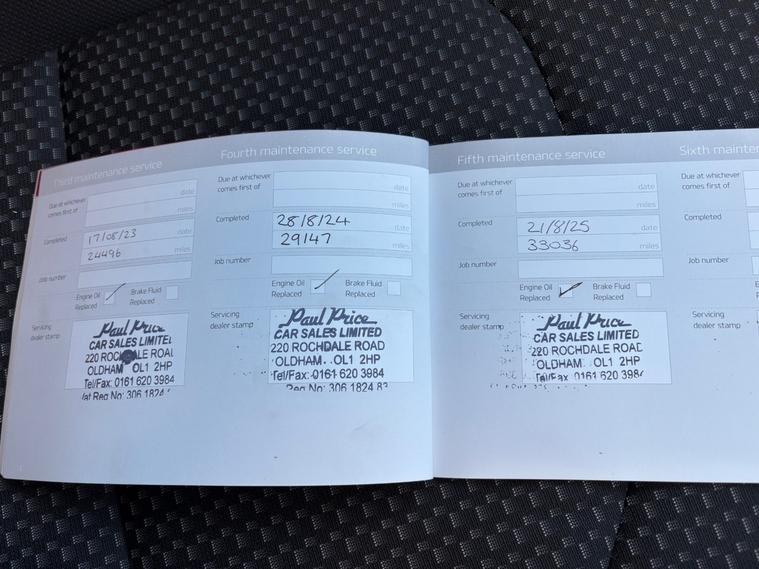 Third maintenance service
Due at whichever
comes first of
date
miles
Completed
17/08/23
date
24496
miles
Job number
Engine Oil
Replaced
Brake Fluid
Replaced
Servicing
dealer stamp
Paul Price
CAR SALES LIMITED
220 ROCHDALE ROAD
OLDHAM OL1 2HP
Tel/Fax: 0161 620 3984
Reg No: 306 1824
Fourth maintenance service
Due at whichever
comes first of
date
miles
Completed
28/8/24
date
29147
miles
Job number
Engine Oil
Replaced
Brake Fluid
Replaced
Servicing
dealer stamp
Paul Price
CAR SALES LIMITED
220 ROCHDALE ROAD
OLDHAM. OL1 2HP
Tel/Fax: 0161 620 3984
Reg No: 306 1824 83
Fifth maintenance service
Due at whichever
comes first of
date
miles
Completed
21/8/25
date
33036
miles
Job number
Engine Oil
Replaced
Brake Fluid
Replaced
Servicing
dealer stamp
Paul Price
CAR SALES LIMITED
220 ROCHDALE ROAD
OLDHAM. OL1 2HP
Tel/Fax 0161 620 3984
Sixth
Due at whichever
comes first of
Completed
Job number
Servicing
dealer stamp